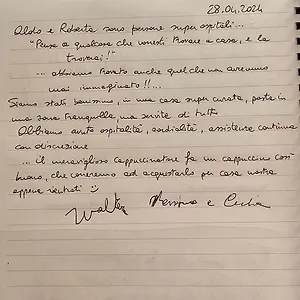 28.04.2024
Aldo e Roberta sono persone super ospitali...
"Pensa a qualcosa che vorresti trovare a casa, e la
troverai!"
... abbiamo trovato anche quel che non avremmo
mai immaginato!!...
Siamo stati benissimo, in una casa super curata, posta in
una zona tranquilla ma servita di tutto
Abbiamo avuto ospitalità, cordialità, assistenza continua
con discrezione
... il meraviglioso cappuccinatore fa un cappuccino così
buono, che correremo ad acquistarlo per casa nostra
appena rientrati :)
Walter e